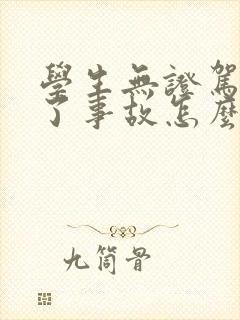 學生無證駕
了事故怎麼
九筒骨